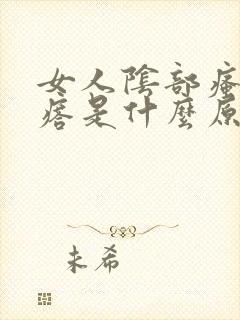 女人陰部瘙
痞是什麼原
未希